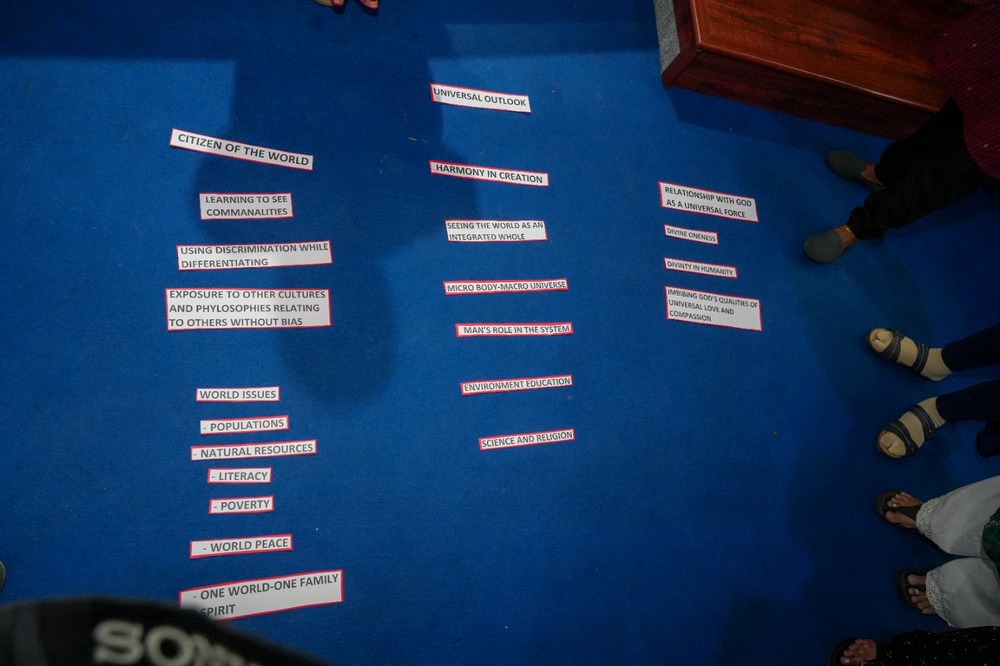 UNIVERSAL OUTLOOK
CITIZEN OF THE WORLD
LEARNING TO SEE
COMMANALITIES
USING DISCRIMINATION WHILE
DIFFERENTIATING
EXPOSURE TO OTHER CULTURES
AND PHYLOSOPHIES RELATING
TO OTHERS WITHOUT BIAS
WORLD ISSUES
- POPULATIONS
- NATURAL RESOURCES
- LITERACY
- POVERTY
- WORLD PEACE
- ONE WORLD-ONE FAMILY
SPIRIT
HARMONY IN CREATION
SEEING THE WORLD AS AN
INTEGRATED WHOLE
MICRO BODY-MACRO UNIVERSE
MAN'S ROLE IN THE SYSTEM
ENVIRONMENT EDUCATION
SCIENCE AND RELIGION
RELATIONSHIP WITH GOD
AS A UNIVERSAL FORCE
DIVINE ONENESS
DIVINTY IN HUMANITY
IMBIBING GOD'S QUALITIES OF
UNIVERSAL LOVE AND
COMPASSION